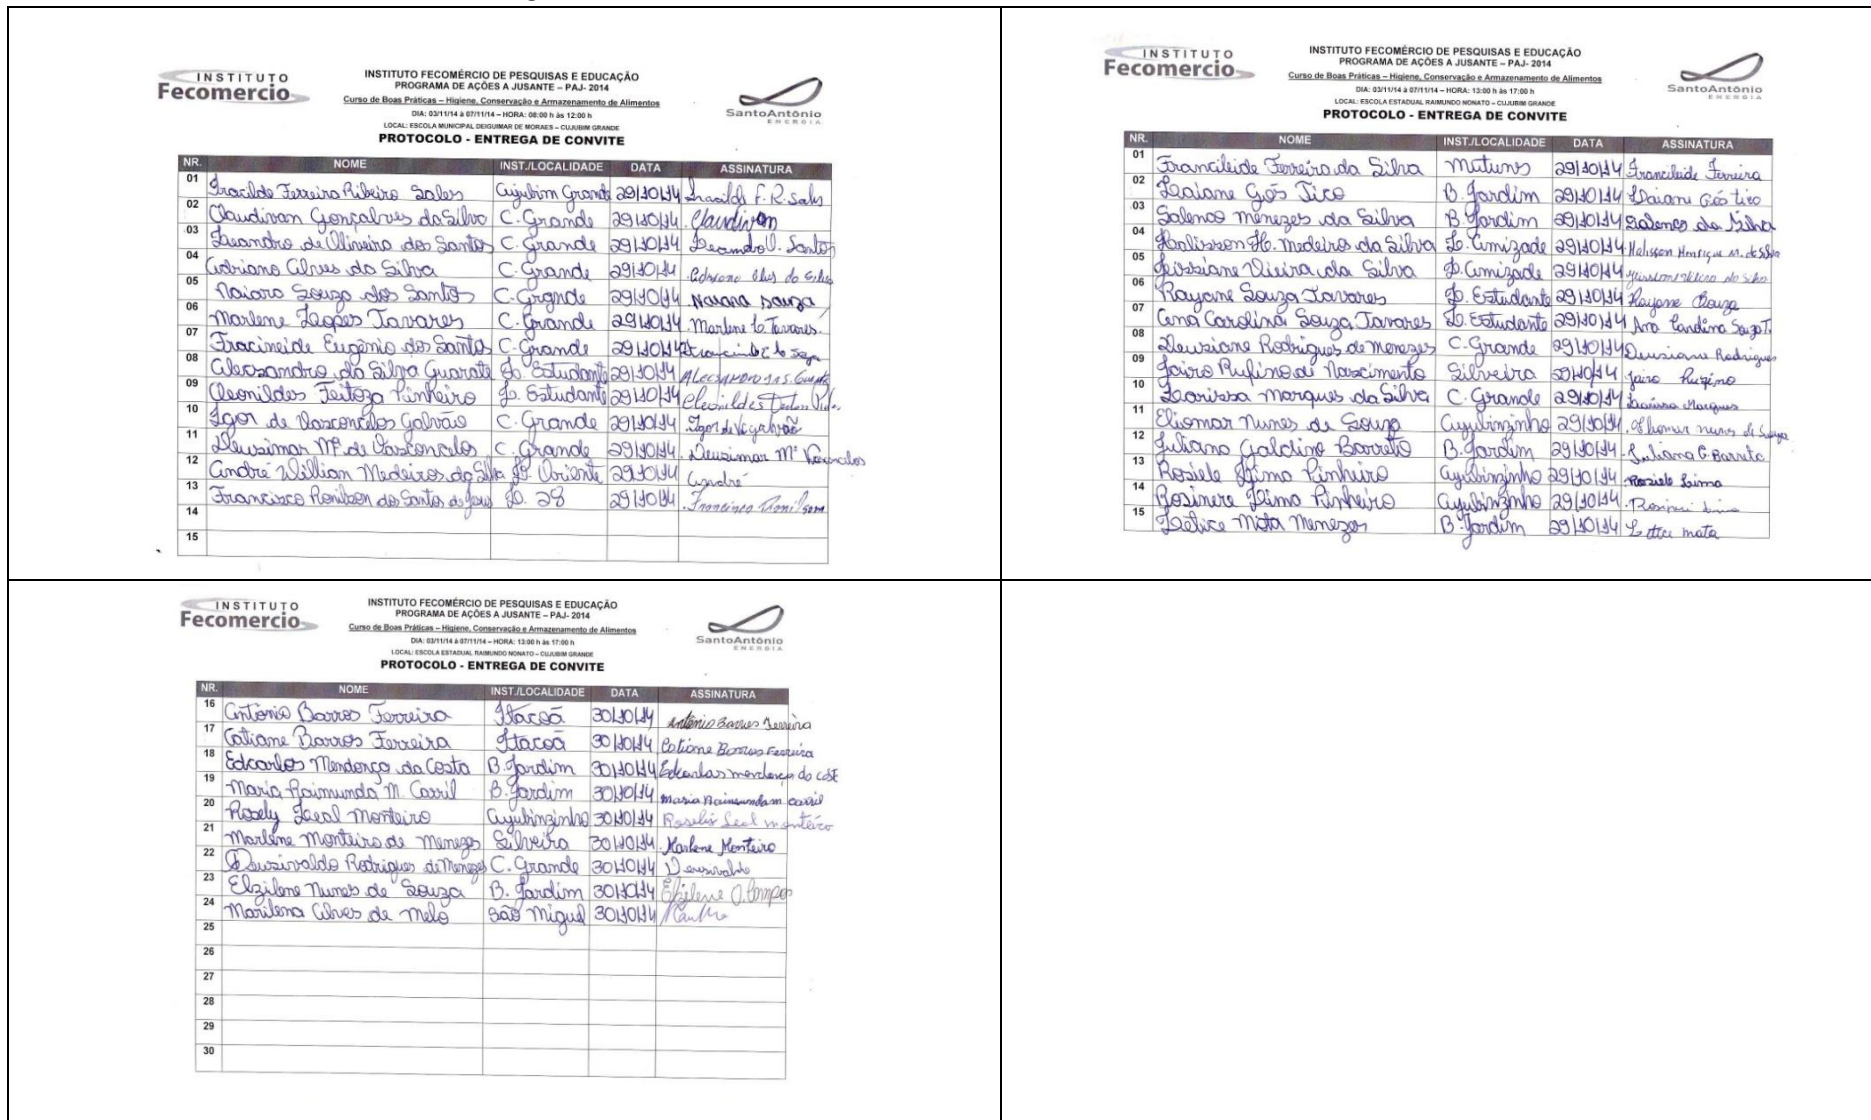 INSTITUTO
Fecomercio
INSTITUTO FECOMÉRCIO DE PESQUISAS E EDUCAÇÃO
PROGRAMA DE AÇÕES A JUSANTE – PAJ- 2014
Curso de Boas Práticas – Higiene, Conservação e Armazenamento de Alimentos
DIA: 03/11/14 à 07/11/14 – HORA: 08:00 h às 12:00 h
LOCAL: ESCOLA MUNICIPAL DEIGUIMAR DE MORAES – CUJUBIM GRANDE
PROTOCOLO - ENTREGA DE CONVITE
SantoAntônio
ENERGIA
NR. NOME INST./LOCALIDADE DATA ASSINATURA
01 Iracilde Ferreira Ribeiro Sales Cujubim Grande 29/10/14 Iracilde F. R. Sales
02 Claudivan Gonçalves da Silva C. Grande 29/10/14 Claudivan
03 Leandro de Oliveira dos Santos C. Grande 29/10/14 Leandro O. Santos
04 Adriano Alves da Silva C. Grande 29/10/14 Adriano Alves da Silva
05 Naiara Souza dos Santos C. Grande 29/10/14 Naiara Souza
06 Marlene Lopes Tavares C. Grande 29/10/14 Marlene L. Tavares
07 Fracineide Eugênio dos Santos C. Grande 29/10/14
08 Alecsandro da Silva Guarate L. Estudante 29/10/14
09 Cleonildes Feitoza Pinheiro L. Estudante 29/10/14 Cleonildes
10 Igor de Vasconcelos Galvão C. Grande 29/10/14 Igor de V. Galvão
11 Deusimar Mª de Vasconcelos C. Grande 29/10/14 Deusimar Mª Vasconcelos
12 André Willian Medeiros da Silva L. Oriente 29/10/14 André
13 Francisco Ronilson dos Santos de Jesus L. 28 29/10/14 Francisco Ronilson
14
15
INSTITUTO
Fecomercio
INSTITUTO FECOMÉRCIO DE PESQUISAS E EDUCAÇÃO
PROGRAMA DE AÇÕES A JUSANTE – PAJ- 2014
Curso de Boas Práticas – Higiene, Conservação e Armazenamento de Alimentos
DIA: 03/11/14 à 07/11/14 – HORA: 13:00 h às 17:00 h
LOCAL: ESCOLA ESTADUAL RAIMUNDO NONATO – CUJUBIM GRANDE
PROTOCOLO - ENTREGA DE CONVITE
SantoAntônio
ENERGIA
NR. NOME INST./LOCALIDADE DATA ASSINATURA
01 Francileide Ferreira da Silva Mutuns 29/10/14 Francileide Ferreira
02 Daiane Gós Tico B. Jardim 29/10/14 Daiane Gós tico
03 Salenco Menezes da Silva B. Jardim 29/10/14 Salenco da Silva
04 Halisson H. Medeiros da Silva L. Amizade 29/10/14 Halisson Henrique M. da Silva
05 Jissiane Vieira da Silva L. Amizade 29/10/14
06 Rayane Souza Tavares L. Estudante 29/10/14 Rayane Souza
07 Ana Carolina Souza Tavares L. Estudante 29/10/14 Ana Carolina Souza T.
08 Deusiane Rodrigues de Menezes C. Grande 29/10/14 Deusiane Rodrigues
09 Jairo Rufino do Nascimento Silveira 29/10/14 Jairo Rufino
10 Larissa Marques da Silva C. Grande 29/10/14 Larissa Marques
11 Eliomar Nunes de Souza Cujubinzinho 29/10/14 Eliomar nunes de Souza
12 Juliana Galdino Barreto B. Jardim 29/10/14 Juliana G. Barreto
13 Rosiele Lima Pinheiro Cujubinzinho 29/10/14 Rosiele Lima
14 Rosinere Lima Pinheiro Cujubinzinho 29/10/14
15 Letice Mota Menezes B. Jardim 29/10/14 Letice mota
INSTITUTO
Fecomercio
INSTITUTO FECOMÉRCIO DE PESQUISAS E EDUCAÇÃO
PROGRAMA DE AÇÕES A JUSANTE – PAJ- 2014
Curso de Boas Práticas – Higiene, Conservação e Armazenamento de Alimentos
DIA: 03/11/14 à 07/11/14 – HORA: 13:00 h às 17:00 h
LOCAL: ESCOLA ESTADUAL RAIMUNDO NONATO – CUJUBIM GRANDE
PROTOCOLO - ENTREGA DE CONVITE
SantoAntônio
ENERGIA
NR. NOME INST./LOCALIDADE DATA ASSINATURA
16 Antônio Barros Ferreira Itacoã 30/10/14 Antônio Barros Ferreira
17 Catiane Barros Ferreira Itacoã 30/10/14 Catiane Barros Ferreira
18 Edcarlos Mendonça da Costa B. Jardim 30/10/14 Edcarlos mendonça da cost
19 Maria Raimunda M. Carril B. Jardim 30/10/14 maria Raimunda m carril
20 Rosely Leal Monteiro Cujubinzinho 30/10/14 Roseli Leal monteiro
21 Marlene Monteiro de Menezes Silveira 30/10/14 Marlene Monteiro
22 Deusivaldo Rodrigues de Menezes C. Grande 30/10/14 Deusivaldo
23 Elzilene Nunes de Souza B. Jardim 30/10/14 Elzilene
24 Marilena Alves de Melo São Miguel 30/10/14
25
26
27
28
29
30